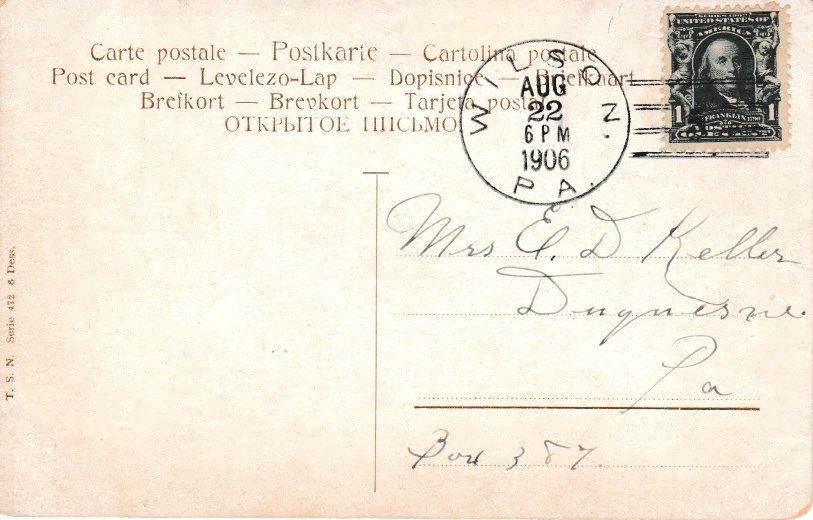 Carte postale — Postkarte — Cartolina postale
Post card — Levelezo-Lap — Dopisnice — Briefkaart
Brefkort — Brevkort — Tarjeta postal
ОТКРЫТОЕ ПИСЬМО
WILSON
AUG
22
6 PM
1906
PA.
SERIES 1902
UNITED STATES OF
AMERICA
FRANKLIN 1790
1 1
Mrs E. D Keller
Duquesne.
Pa
Box 387.
T. S. N. Serie 472 6 Dess.